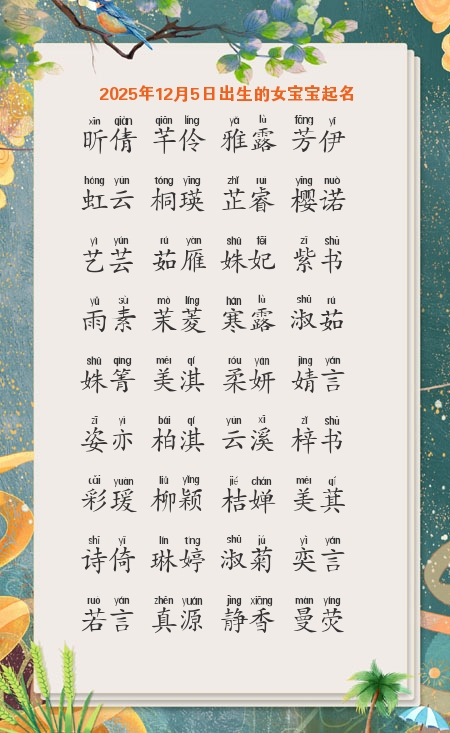 2025年12月5日出生的女宝宝起名
xīn qiàn qiān líng yǎ lù fāng yī
昕倩 芊伶 雅露 芳伊
hóng yún tóng yīng zhǐ ruì yīng nuò
虹云 桐瑛 芷睿 樱诺
yì yún rú yàn shū fēi zǐ shū
艺芸 茹雁 姝妃 紫书
yǔ sù mò líng hán lù shū rú
雨素 茉菱 寒露 淑茹
shū qīng měi qí róu yán jìng yán
姝箐 美淇 柔妍 婧言
zī yì bǎi qí yún xī zǐ shū
姿亦 柏淇 云溪 梓书
cǎi yuàn liǔ yǐng jié chán měi qí
彩瑗 柳颖 桔婵 美萁
shī yǐ lín tíng shū jú yì yán
诗倚 琳婷 淑菊 奕言
ruò yán zhēn yuán jìng xiāng màn yíng
若言 真源 静香 曼荧